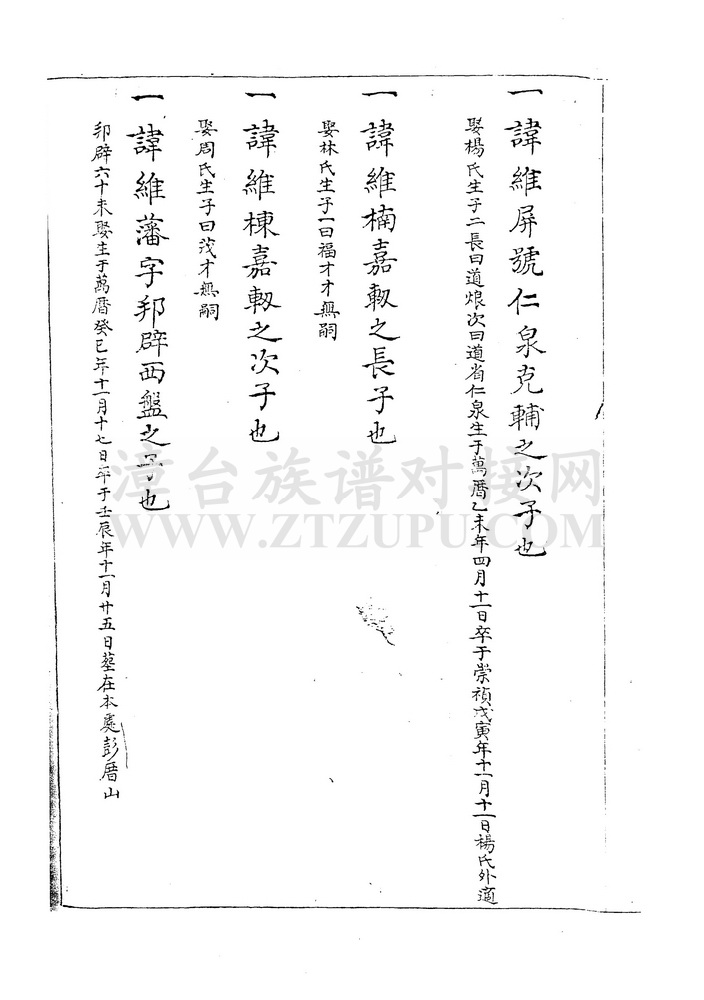 一諱維屏號仁泉克輔之次子也
娶楊氏生子二長曰道烺次曰道省仁泉生于萬曆乙未年四月十一日卒于崇禎戊寅年十一月十一日楊氏外適
一諱維楠嘉㪅之長子也
娶林氏生子一曰福才才無嗣
一諱維棟嘉㪅之次子也
娶周氏生子曰茂才無嗣
一諱維藩字邦辟西盤之子也
邦辟六十未娶生于萬曆癸巳年十一月十七日卒于壬辰年十一月廿五日墓在本處彭厝山
漳台族谱对接网
WWW.ZTZUPU.COM